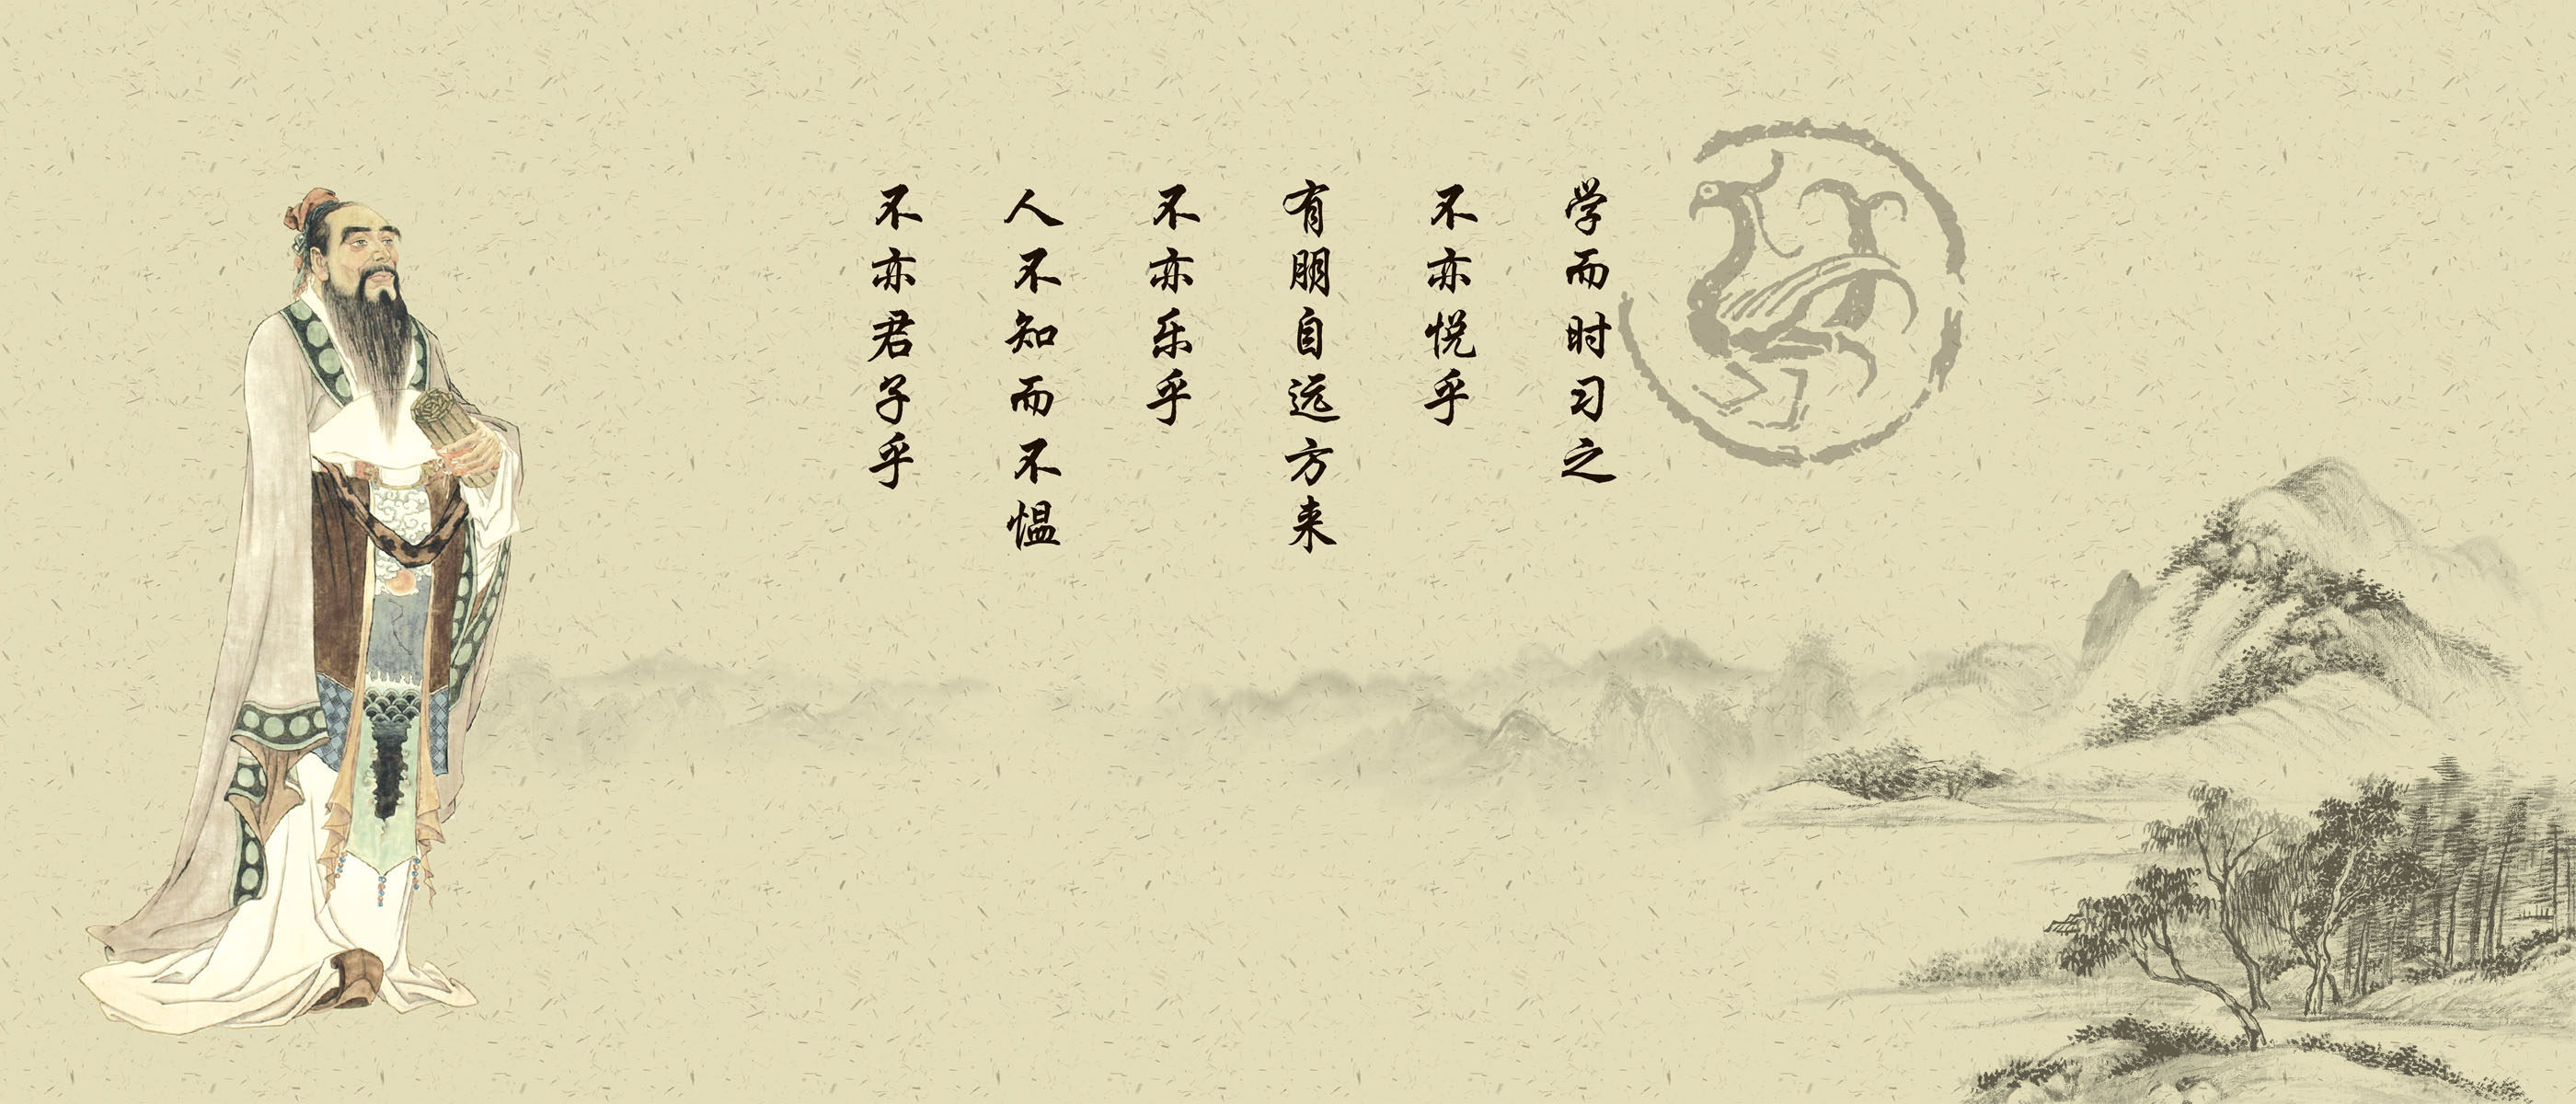 学而时习之
不亦悦乎
有朋自远方来
不亦乐乎
人不知而不愠
不亦君子乎